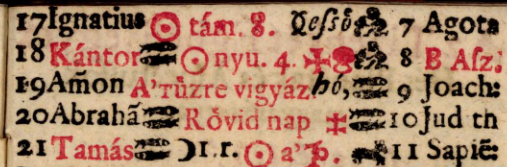 17 Ignatius ☉ tám. 8. Qeſsô 7 Agota
18 Kántor ☉ nyu. 4. ✠ 8 B Aſz.
19 Am̃on A'tůzre vigyáz hó, 9 Joach:
20 Abrahã Rỏvid nap ‡ 10 Jud th
21 Tamás 1. r. ☉ a' ♄. 11 Sapiẽ: